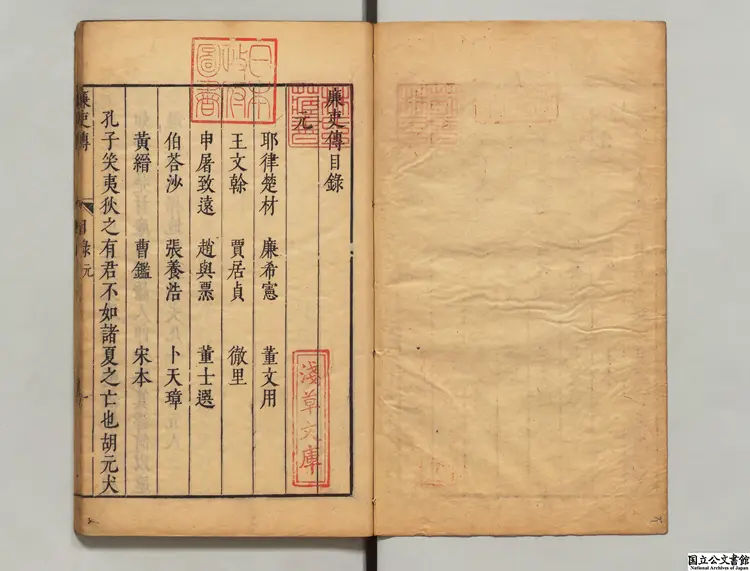 廉吏傳目錄
元
耶律楚材 廉希憲 董文用
王文榦 賈居貞 徹里
申屠致遠 趙與䙂 董士選
伯荅沙 張養浩 卜天璋
黃縉 曹鑑 宋本
孔子笑夷狄之有君不如諸夏之亡也胡元犬
廉吏傳 目錄元
日本政府圖書
淺草文庫
国立公文書館
National Archives of Japan